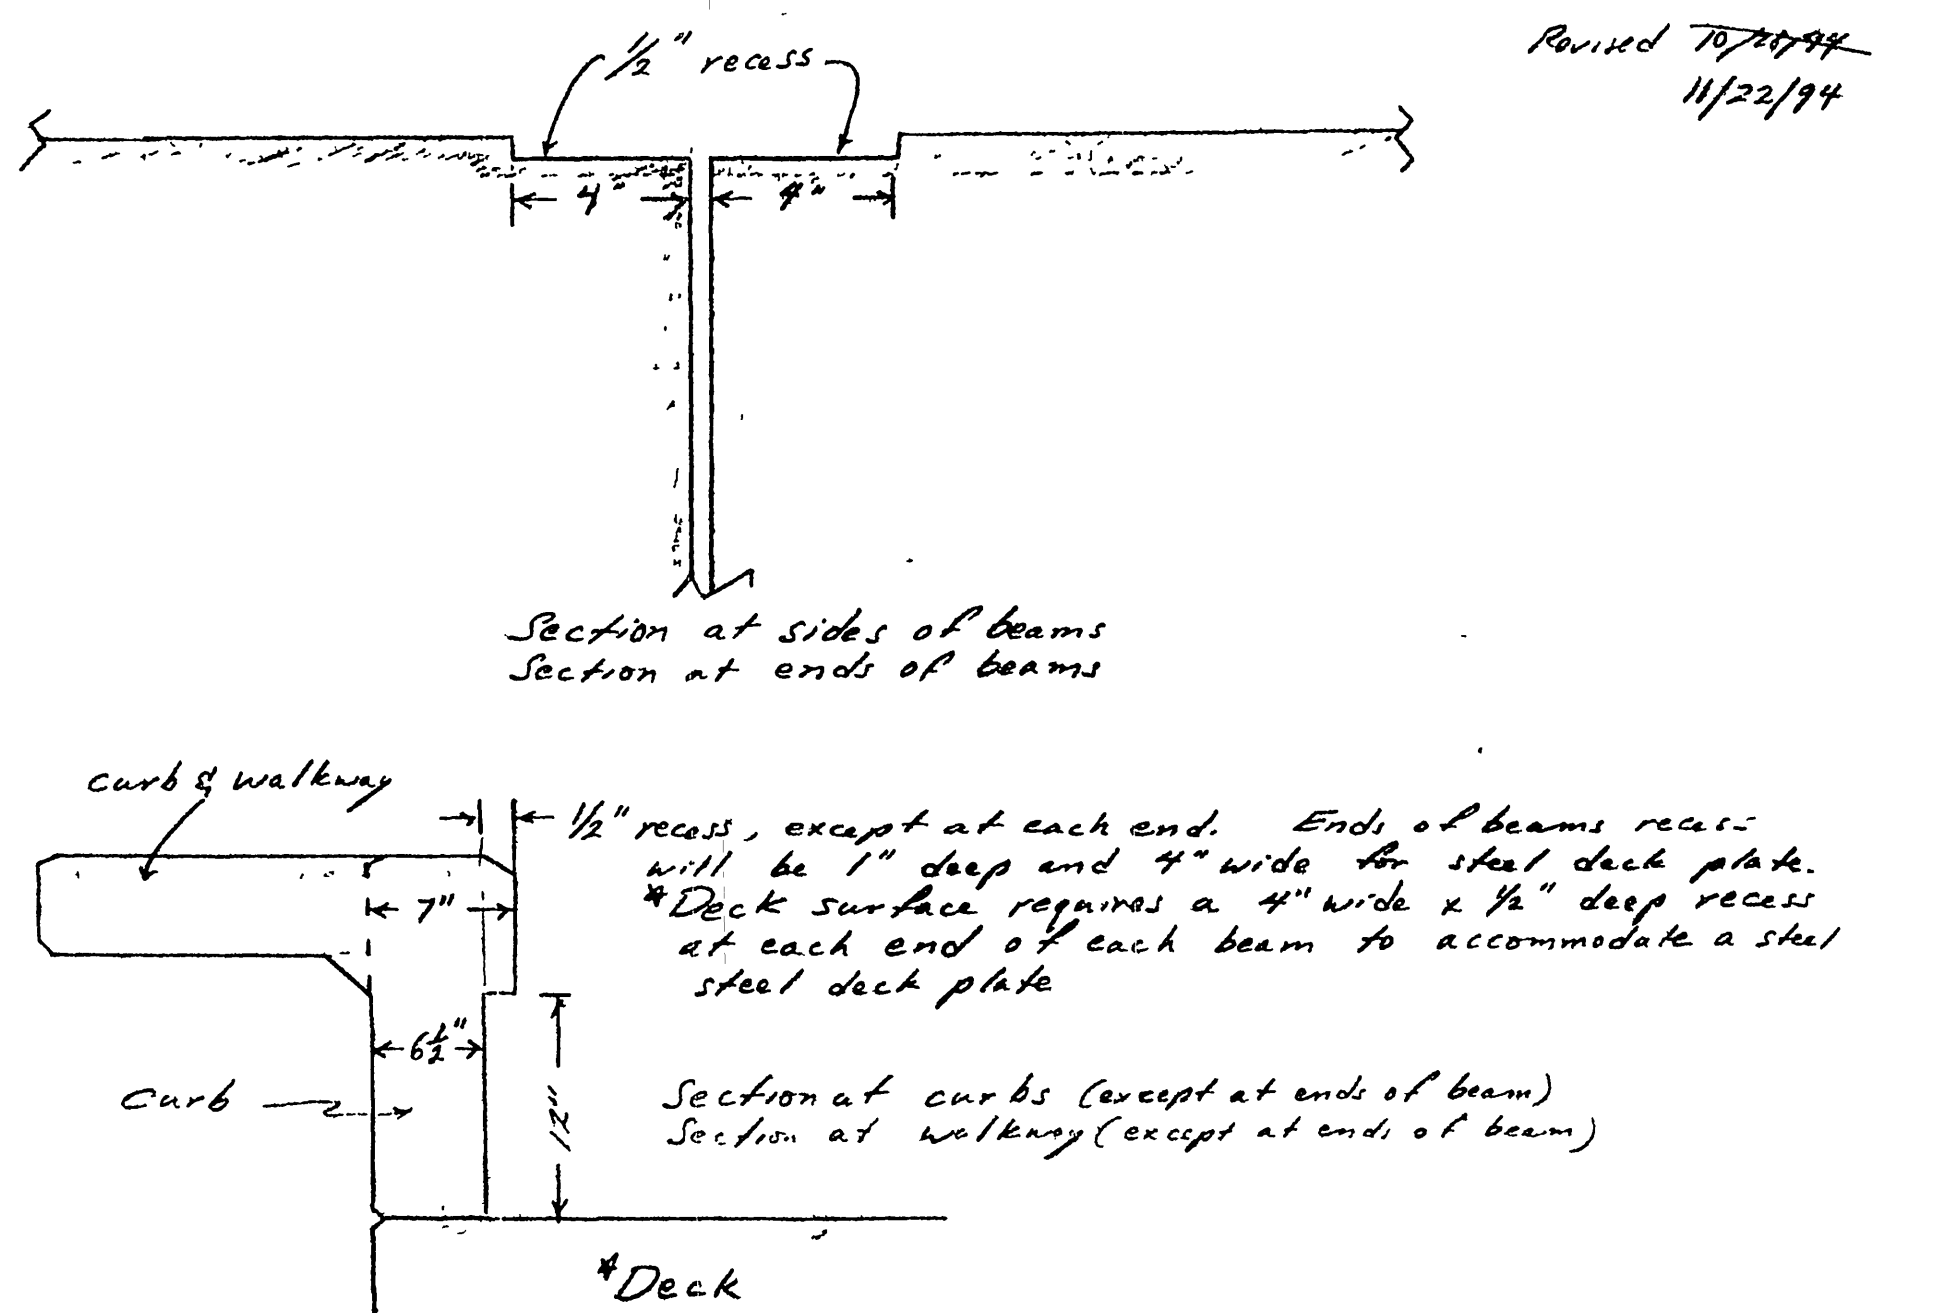 Revised 10/28/94
11/22/94
1/2" recess
4" 4"
Section at sides of beams
Section at ends of beams
curb & walkway
1/2" recess, except at each end. Ends of beams recess
will be 1" deep and 4" wide for steel deck plate.
*Deck surface requires a 4" wide x 1/2" deep recess
at each end of each beam to accommodate a steel
steel deck plate
7"
6 1/2"
12"
curb
Section at curbs (except at ends of beam)
Section at walkway (except at ends of beam)
*Deck